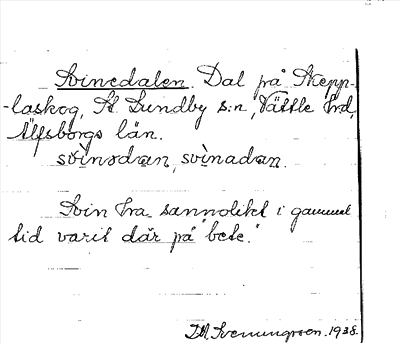 Svinedalen. Dal på Skepp-
-laskog, St Lundby s:n, Vättle hrd,
Älfsborgs län.
svìnədan, svìnadan.
Svin ha sannolikt i gammal
tid varit där på "bete."
1938.